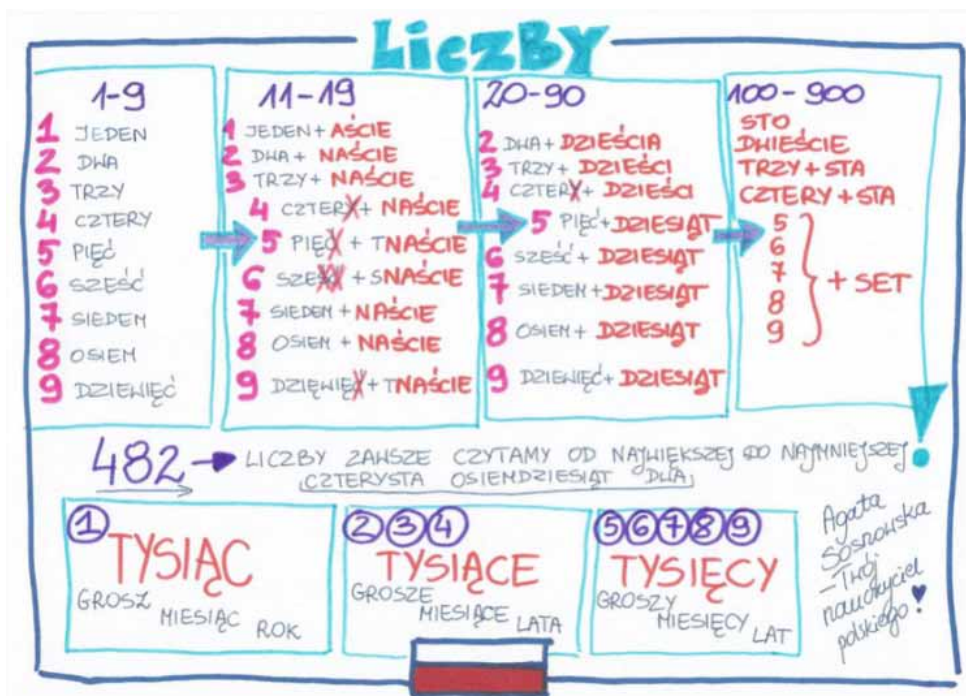 LiczBY
1-9
1 JEDEN
2 DWA
3 TRZY
4 CZTERY
5 PIĘĆ
6 SZEŚĆ
7 SIEDEM
8 OSIEM
9 DZIEWIĘĆ
11-19
1 JEDEN + AŚCIE
2 DWA + NAŚCIE
3 TRZY + NAŚCIE
4 CZTERY + NAŚCIE
5 PIĘĆ + TNAŚCIE
6 SZEŚĆ + SNAŚCIE
7 SIEDEM + NAŚCIE
8 OSIEM + NAŚCIE
9 DZIĘWIĘĆ + TNAŚCIE
20-90
2 DWA + DZIEŚCIA
3 TRZY + DZIEŚCI
4 CZTERY + DZIEŚCI
5 PIĘĆ + DZIESIĄT
6 SZEŚĆ + DZIESIĄT
7 SIEDEM + DZIESIĄT
8 OSIEM + DZIESIĄT
9 DZIEWIĘĆ + DZIESIĄT
100-900
STO
DWIEŚCIE
TRZY + STA
CZTERY + STA
5
6
7 + SET
8
9
482 → LICZBY ZAWSZE CZYTAMY OD NAJWIĘKSZEJ DO NAJMNIEJSZEJ!
CZTERYSTA OSIEMDZIESIĄT DWA
1
TYSIĄC
GROSZ
MIESIĄC
ROK
2 3 4
TYSIĄCE
GROSZE
MIESIĄCE
LATA
5 6 7 8 9
TYSIĘCY
GROSZY
MIESIĘCY
LAT
Agata
Sosnowska
– Twój
nauczyciel
polskiego!